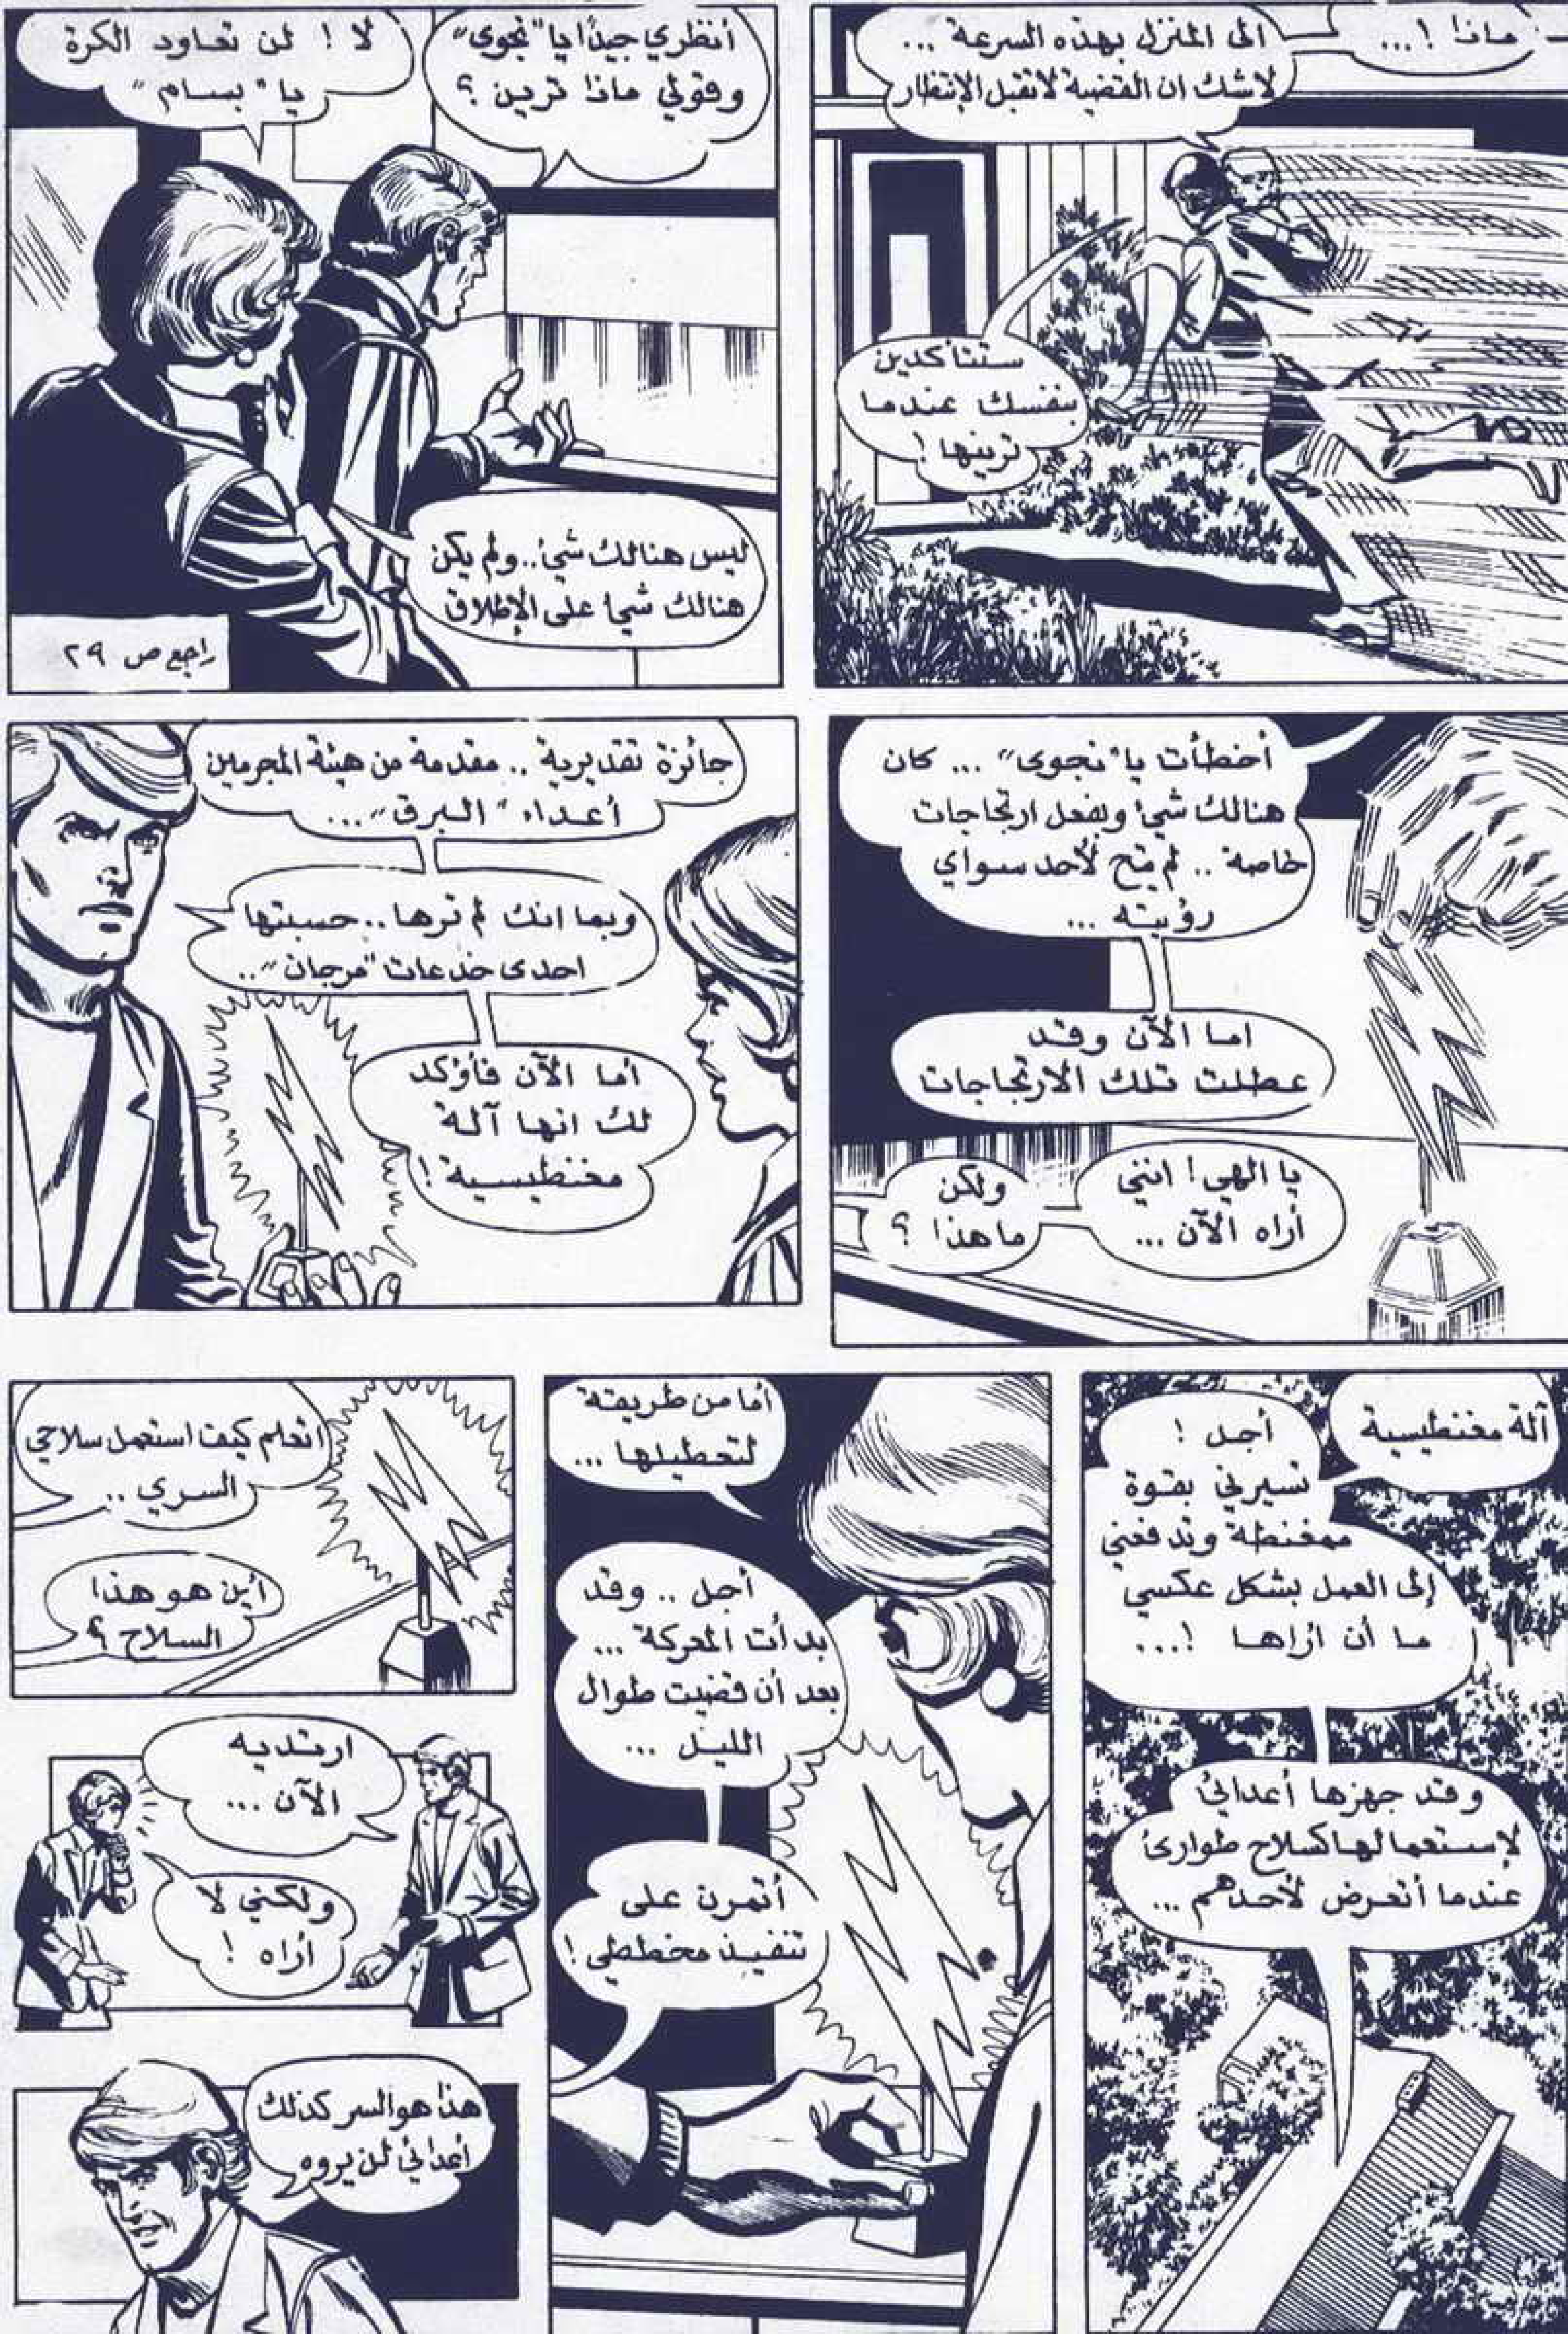 ماذا !...
الى المنزل بهذه السرعة ...
لاشك ان القضية لاتقبل الإنتظار
ستتأكدين
بنفسك عندما
ترينها !
أنظري جيدًا يا "نجوى"
وقولي ماذا ترين ؟
لا ! لن تعاود الكرة
يا "بسام"
ليس هنالك شيئ .. ولم يكن
هنالك شيئ على الإطلاق
راجع ص ٢٩
أخطأت يا "نجوى" ... كان
هنالك شيئ وبفعل ارتجاجات
خاصة .. لم يتح لأحد سواي
رؤيته ...
اما الآن وقد
عطلت تلك الارتجاجات
يا الهي ! انني
أراه الآن ...
ولكن
ما هذا ؟
جائزة تقديرية .. مقدمة من هيئة المجرمين
أعداء "البرق" ...
وبما انك لم ترها .. حسبتها
احدى خدعات "مرجان" ..
أما الآن فأؤكد
لك انها آلة
مغنطيسية !
آلة مغنطيسية
أجل !
تسيرني بقوة
ممغنطة وتدفعني
إلى العمل بشكل عكسي
ما أن أراها !...
وقد جهزها أعدائي
لإستعمالها كسلاح طوارئ
عندما أتعرض لأحدهم ...
أما من طريقة
لتعطيلها ...
أجل .. وقد
بدأت المعركة ...
بعد أن قضيت طوال
الليل ...
أتمرن على
تنفيذ مخططي !
اتعلم كيف استعمل سلاحي
السري ..
أين هو هذا
السلاح ؟
ارتديه
الآن ...
ولكني لا
أراه !
هذا هو السر كذلك
أعدائي لن يروه